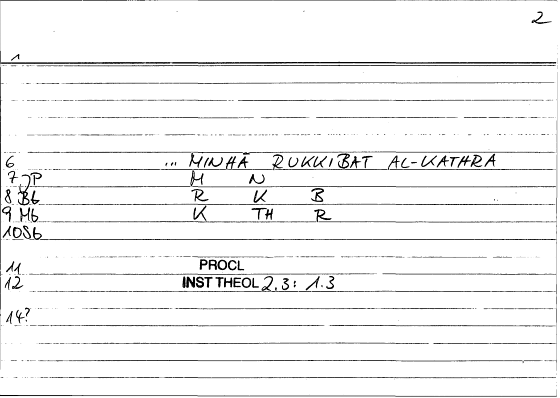 2
1
6 ... MINHĀ RUKKIBAT AL-KATHRA
7 JP M N
8 Bb R K B
9 Mb K TH R
10Sb
11 PROCL
12 INST THEOL 2.3: 1.3
14?